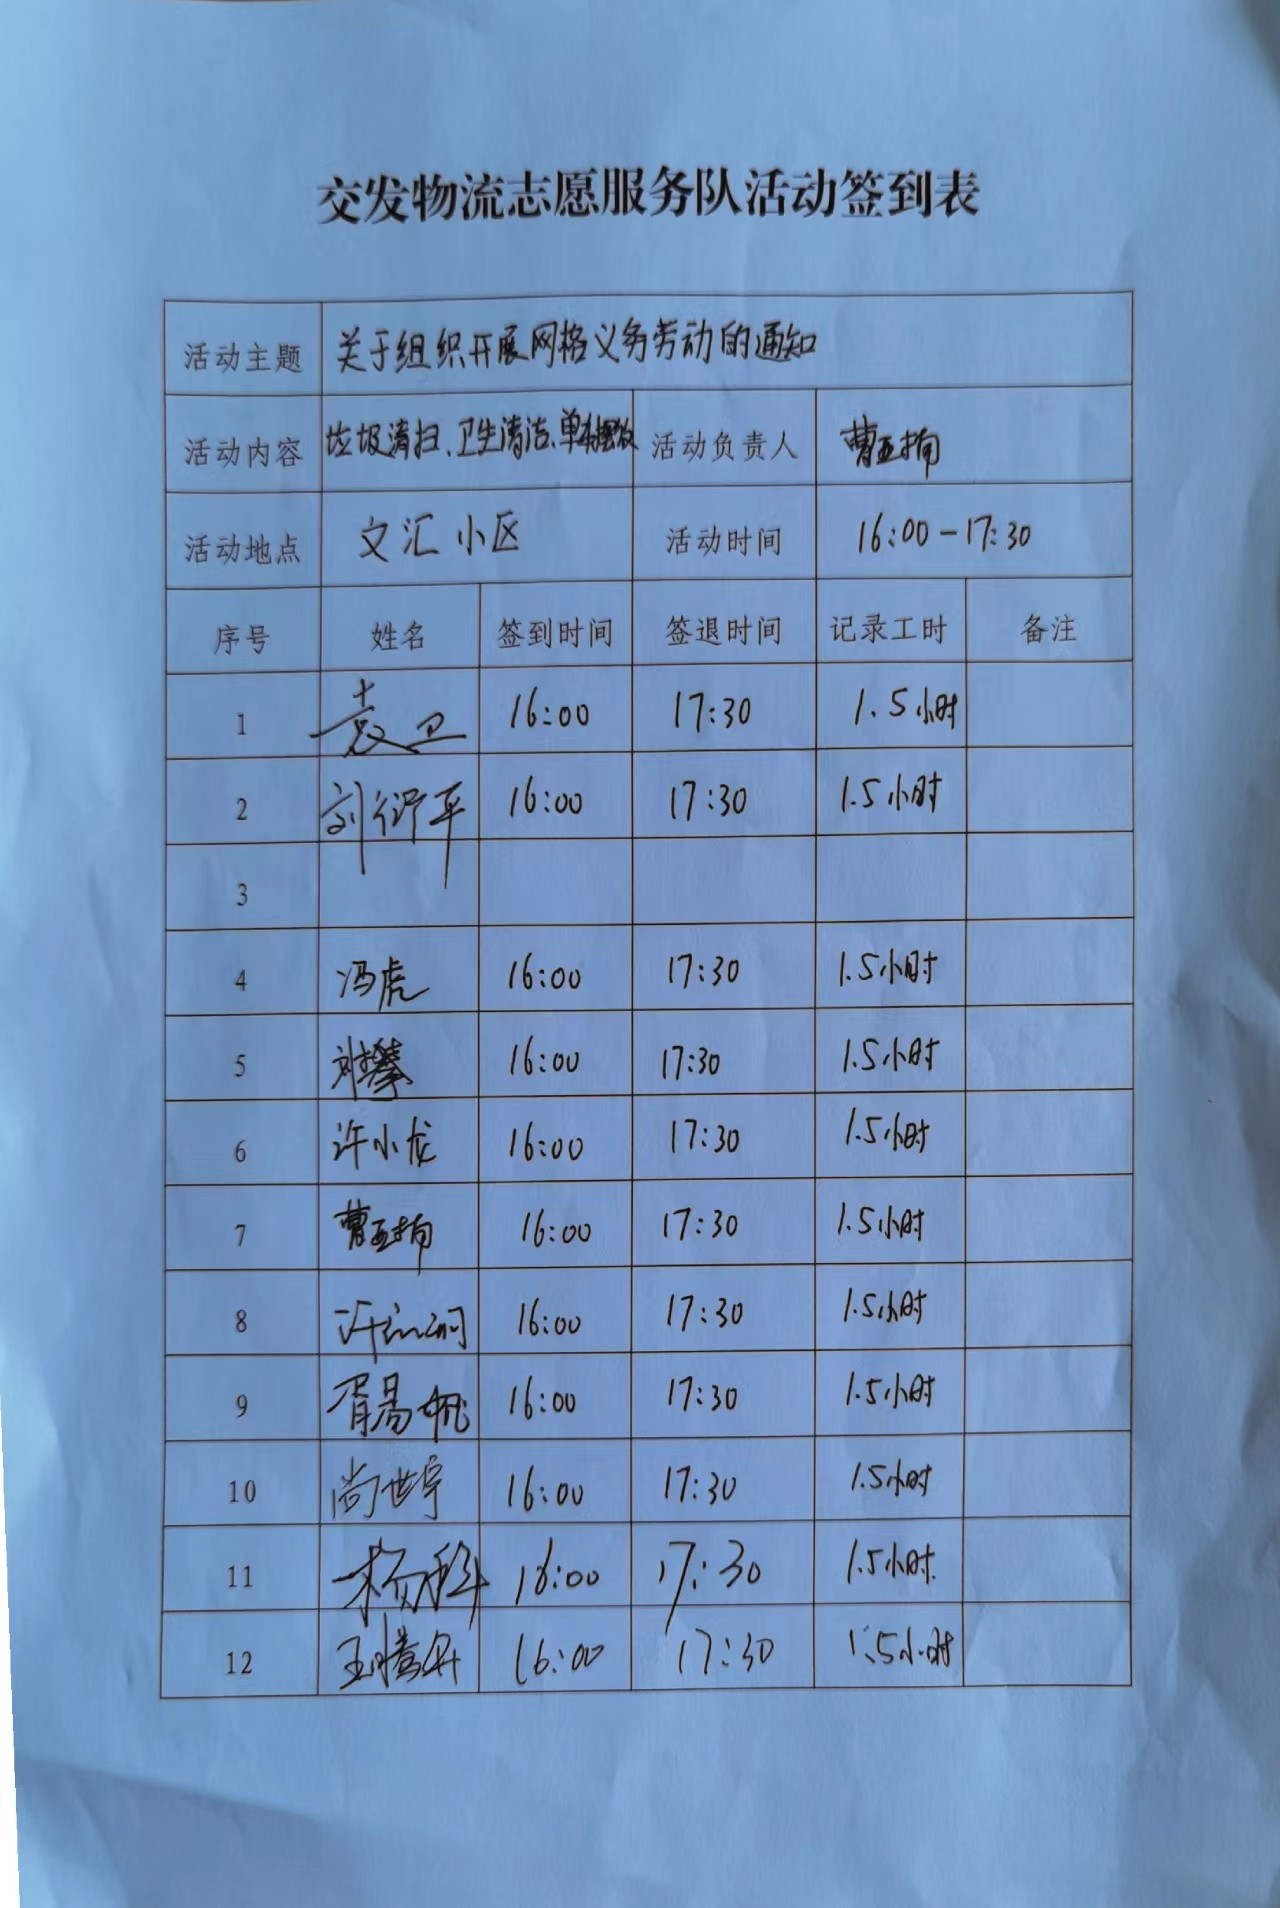 交发物流志愿服务队活动签到表
活动主题 关于组织开展网格义务劳动的通知
活动内容 垃圾清扫、卫生清洁、单车摆放 活动负责人 曹亚楠
活动地点 文汇小区 活动时间 16:00-17:30
序号 姓名 签到时间 签退时间 记录工时 备注
1 袁卫 16:00 17:30 1.5小时
2 刘衍平 16:00 17:30 1.5小时
3
4 冯虎 16:00 17:30 1.5小时
5 刘攀 16:00 17:30 1.5小时
6 许小龙 16:00 17:30 1.5小时
7 曹亚楠 16:00 17:30 1.5小时
8 16:00 17:30 1.5小时
9 胥易帆 16:00 17:30 1.5小时
10 尚世宇 16:00 17:30 1.5小时
11 杨科 16:00 17:30 1.5小时
12 16:00 17:30 1.5小时